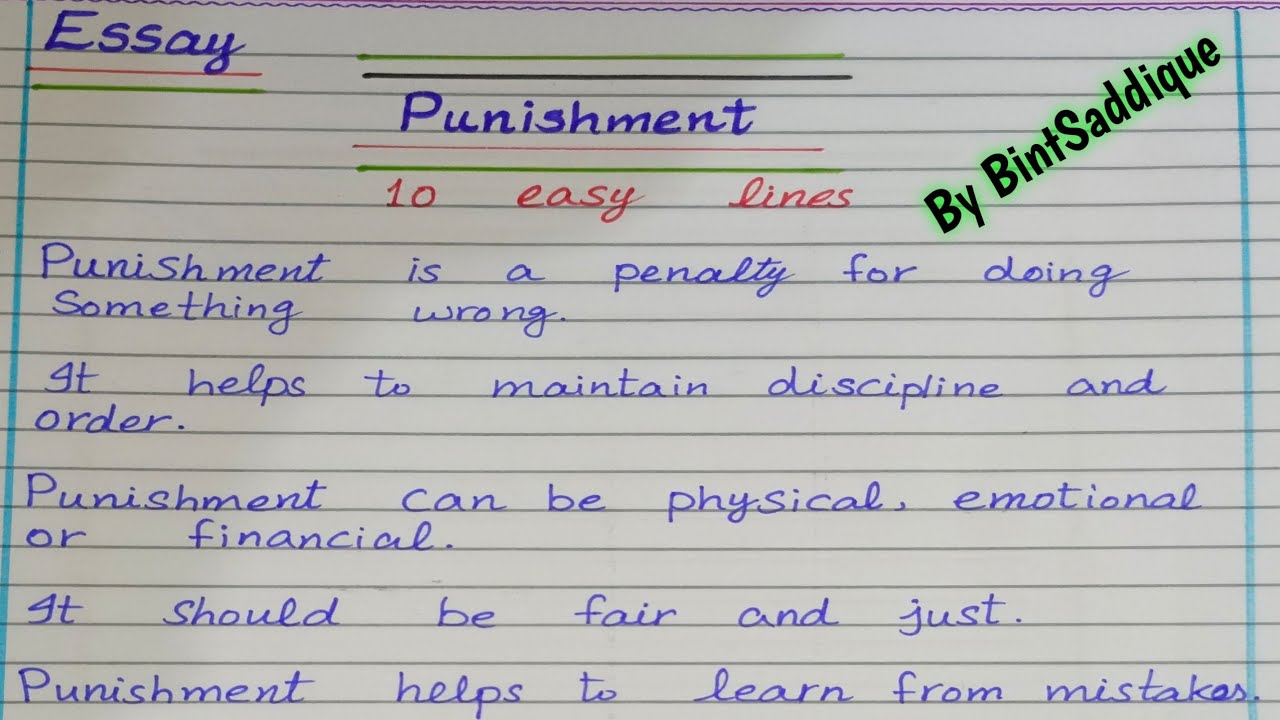 Essay
Punishment
10 easy lines
By BintSaddique
Punishment is a penalty for doing
Something wrong.
It helps to maintain discipline and
order.
Punishment can be physical, emotional
or financial.
It should be fair and just.
Punishment helps to learn from mistakes.